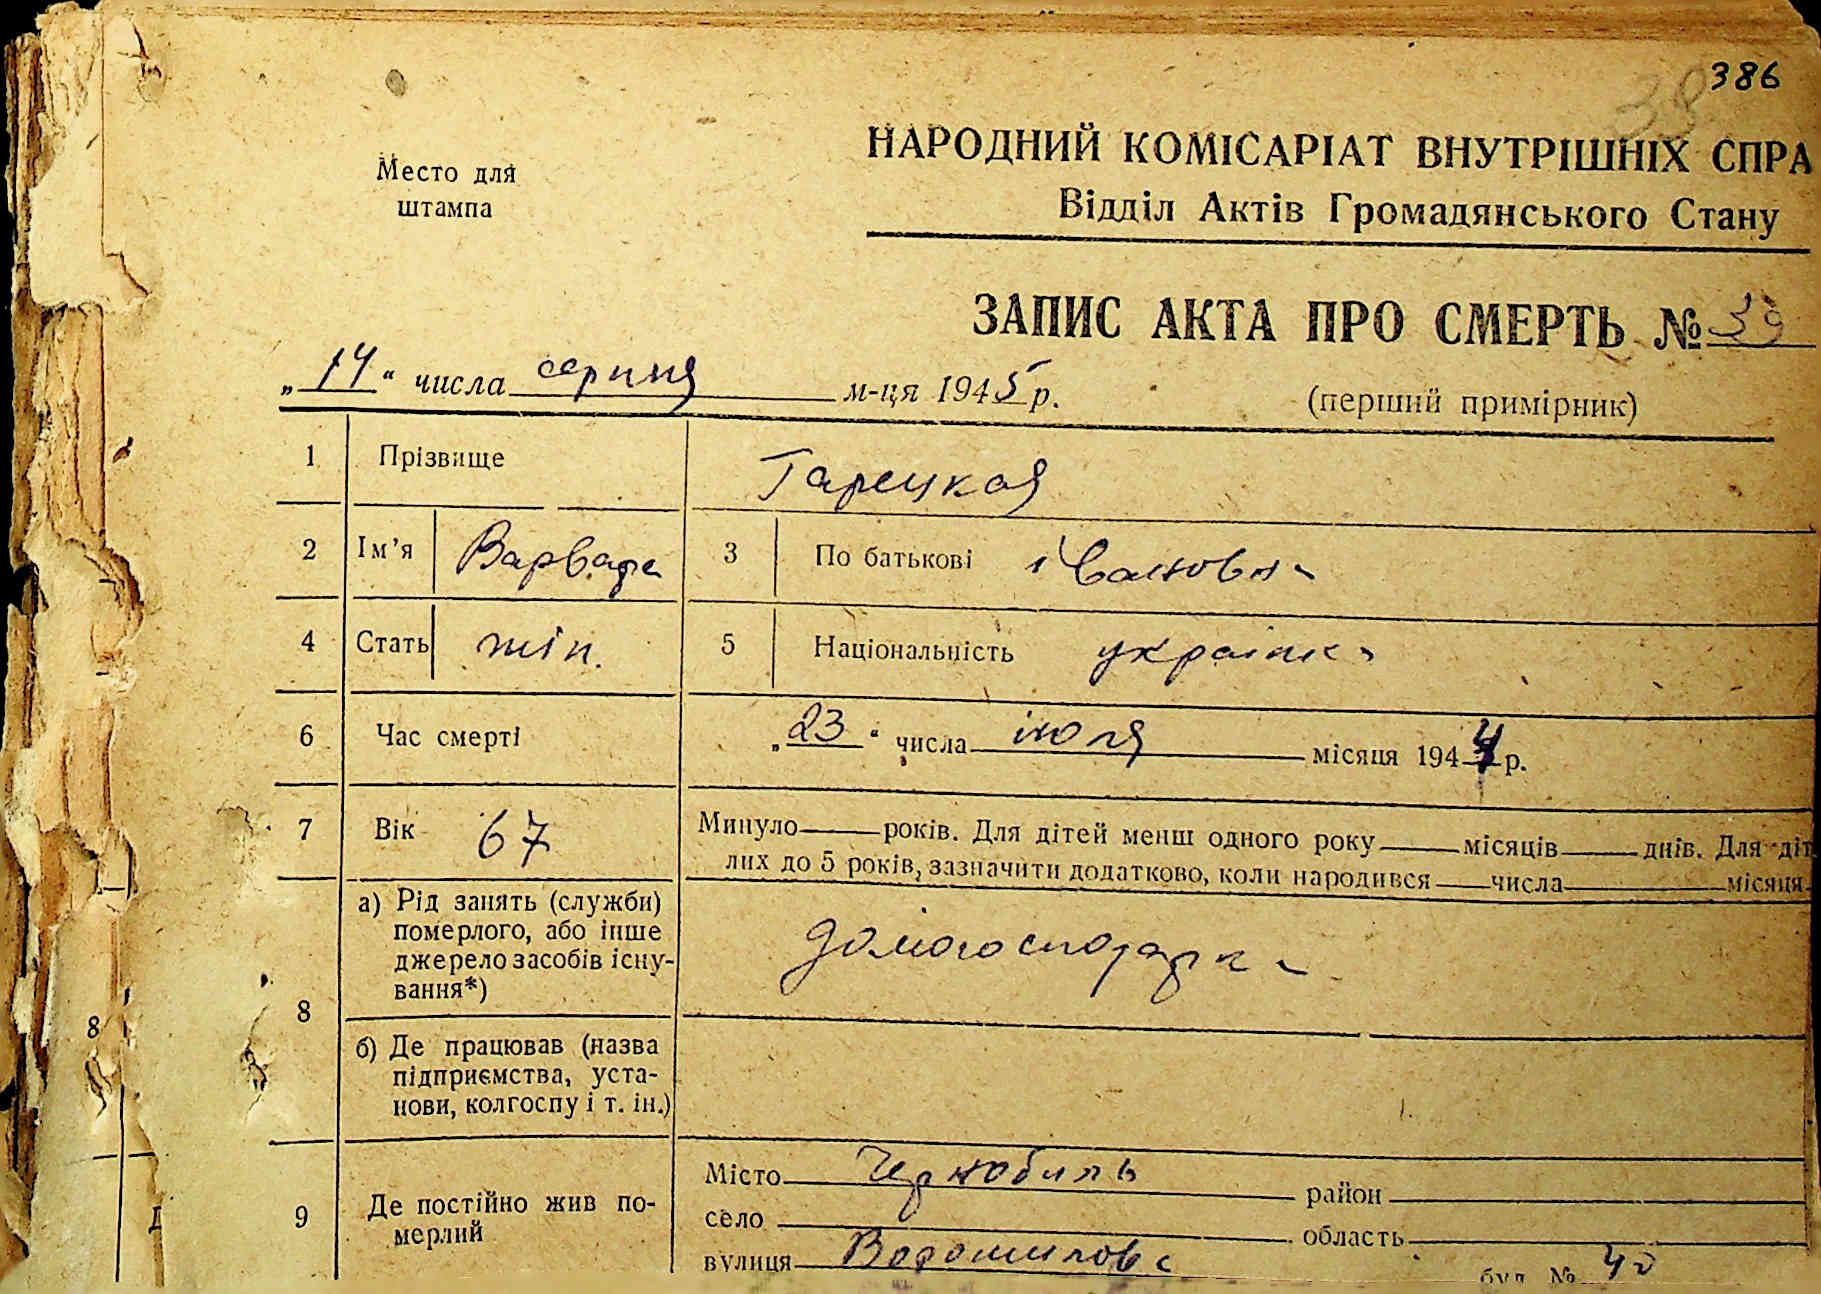 386
38
Место для
штампа
НАРОДНИЙ КОМІСАРІАТ ВНУТРІШНІХ СПРА
Відділ Актів Громадянського Стану
ЗАПИС АКТА ПРО СМЕРТЬ № 39
„14“ числа серпня м-ця 1945 р.
(перший примірник)
1 Прізвище Гарецкая
2 Ім’я Варвара 3 По батькові Івановна
4 Стать жін. 5 Національність українка
6 Час смерті „23“ числа июля місяця 1944 р.
7 Вік 67 Минуло років. Для дітей менш одного року місяців днів. Для діт
лих до 5 років, зазначити додатково, коли народився числа місяця
8 а) Рід занять (служби)
померлого, або інше
джерело засобів існу-
вання*)
домогосподарка
б) Де працював (назва
підприємства, уста-
нови, колгоспу і т. ін.)
8
9 Де постійно жив по-
мерлий
Місто Чернобиль район
село область
вулиця Ворошилова буд. № 40